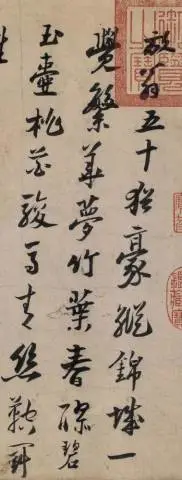 放翁五十猶豪縱錦城一
覺繁華夢竹葉春醪碧
玉壺桃花駿馬青絲鞚鬭